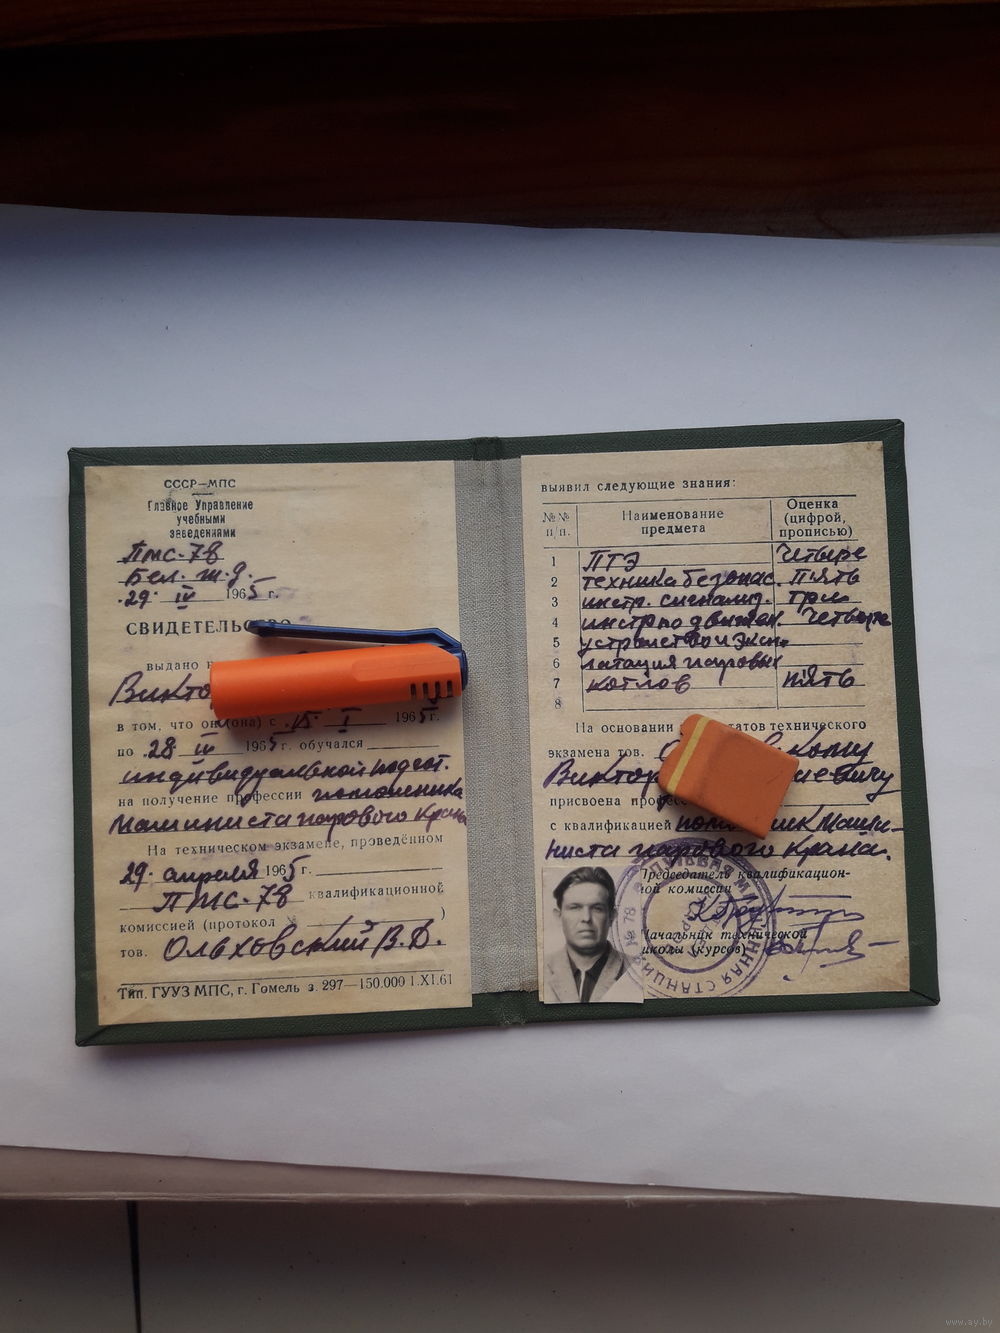 СССР—МПС
Главное Управление
учебными
заведениями
ПМС-78
Бел. ж.д.
29. IV 1965 г.
СВИДЕТЕЛЬСТВО
выдано
в том, что он (она) с 15. I 1965 г.
по 28. IV 1965 г. обучался
индивидуальной подгот.
на получение профессии помошника
машиниста парового крана
На техническом экзамене, проведённом
29. апреля 1965 г.
ПМС-78 квалификационной
комиссией (протокол № )
тов. Ольховский В.Д.
Тип. ГУУЗ МПС, г. Гомель з. 297—150.000 1.XI.61
выявил следующие знания:
№№ п/п. Наименование предмета Оценка (цифрой, прописью)
1 ПТЭ Четыре
2 техника безопас. Пять
3 инстр. сигнализ. три
4 инстр по движен. Четыре
5 устройство и эксп-
6 латация паровых
7 котлов пять
8
На основании технического
экзамена тов.
присвоена
с квалификацией маши-
ниста парового крана.
Председатель квалификацион-
ной комиссии
Начальник технической
школы (курсов)
№ 78
СТАНЦИЯ
www.ay.by